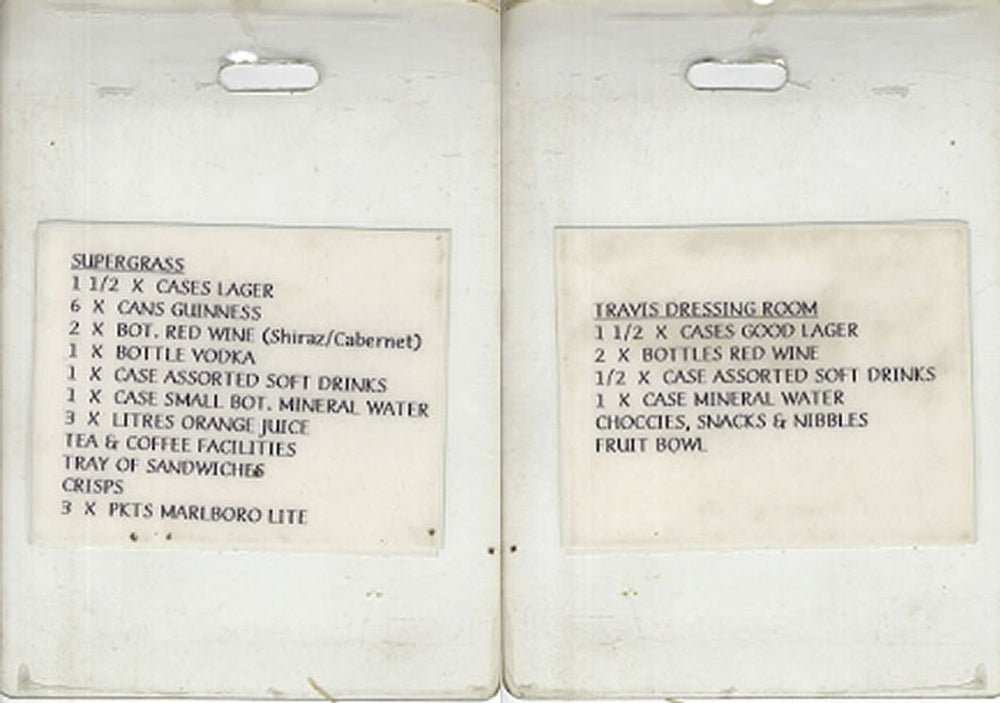 SUPERGRASS
1 1/2 X CASES LAGER
6 X CANS GUINNESS
2 X BOT. RED WINE (Shiraz/Cabernet)
1 X BOTTLE VODKA
1 X CASE ASSORTED SOFT DRINKS
1 X CASE SMALL BOT. MINERAL WATER
3 X LITRES ORANGE JUICE
TEA & COFFEE FACILITIES
TRAY OF SANDWICHES
CRISPS
3 X PKTS MARLBORO LITE
TRAVIS DRESSING ROOM
1 1/2 X CASES GOOD LAGER
2 X BOTTLES RED WINE
1/2 X CASE ASSORTED SOFT DRINKS
1 X CASE MINERAL WATER
CHOCCIES, SNACKS & NIBBLES
FRUIT BOWL